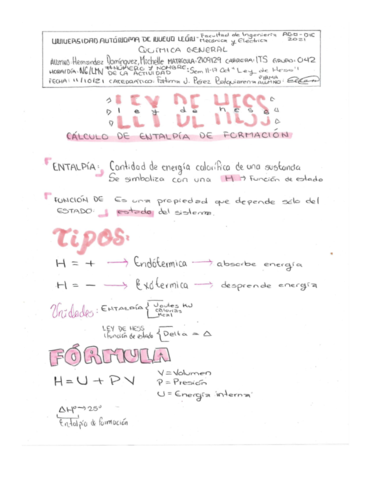 UNIVERSIDAD AUTÓNOMA DE NUEVO LEÓN - Facultad de Ingeniería Mecánica y Eléctrica AGO-DIC 2021
QUÍMICA GENERAL
Alumno: Hernandez Domínguez, Michelle CARRERA: ITS GRUPO: 042
NÚMERO Y NOMBRE DE LA ACTIVIDAD: "Ley de Hess"
FECHA: CATEDRÁTICO: J. Pérez
LEY DE HESS
ley de hess
LEY DE HESS
CÁLCULO DE ENTALPÍA DE FORMACIÓN
ENTALPÍA: Cantidad de energía calorífica de una sustancia
Se simboliza con una H → Función de estado
FUNCIÓN DE ESTADO: Es una propiedad que depende sólo del
estado del sistema.
Tipos:
H = + → Endotermica → absorbe energía
H = - → Exotermica → desprende energía
Unidades: ENTALPÍA
LEY DE HESS
(función de estado) Delta = Δ
FÓRMULA
H = U + PV
V = Volumen
P = Presión
U = Energía interna
ΔH° → 25°
Entalpía de formación